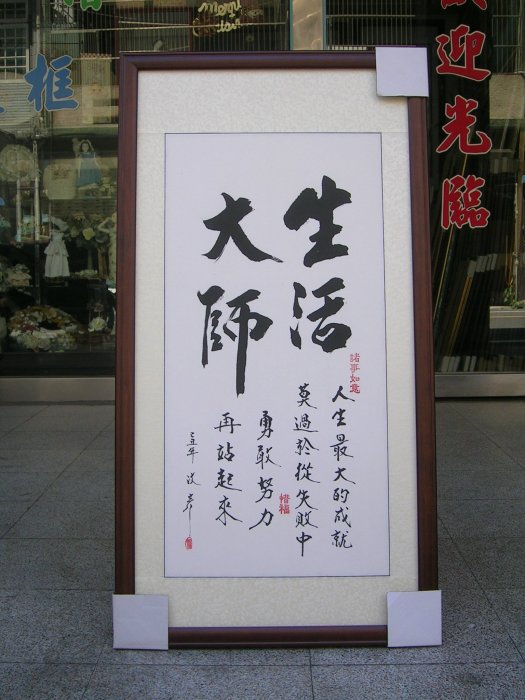 生活
大師
諸事如意
人生最大的成就
莫過於從失敗中
惜福
勇敢努力
再站起來
迎光臨
框